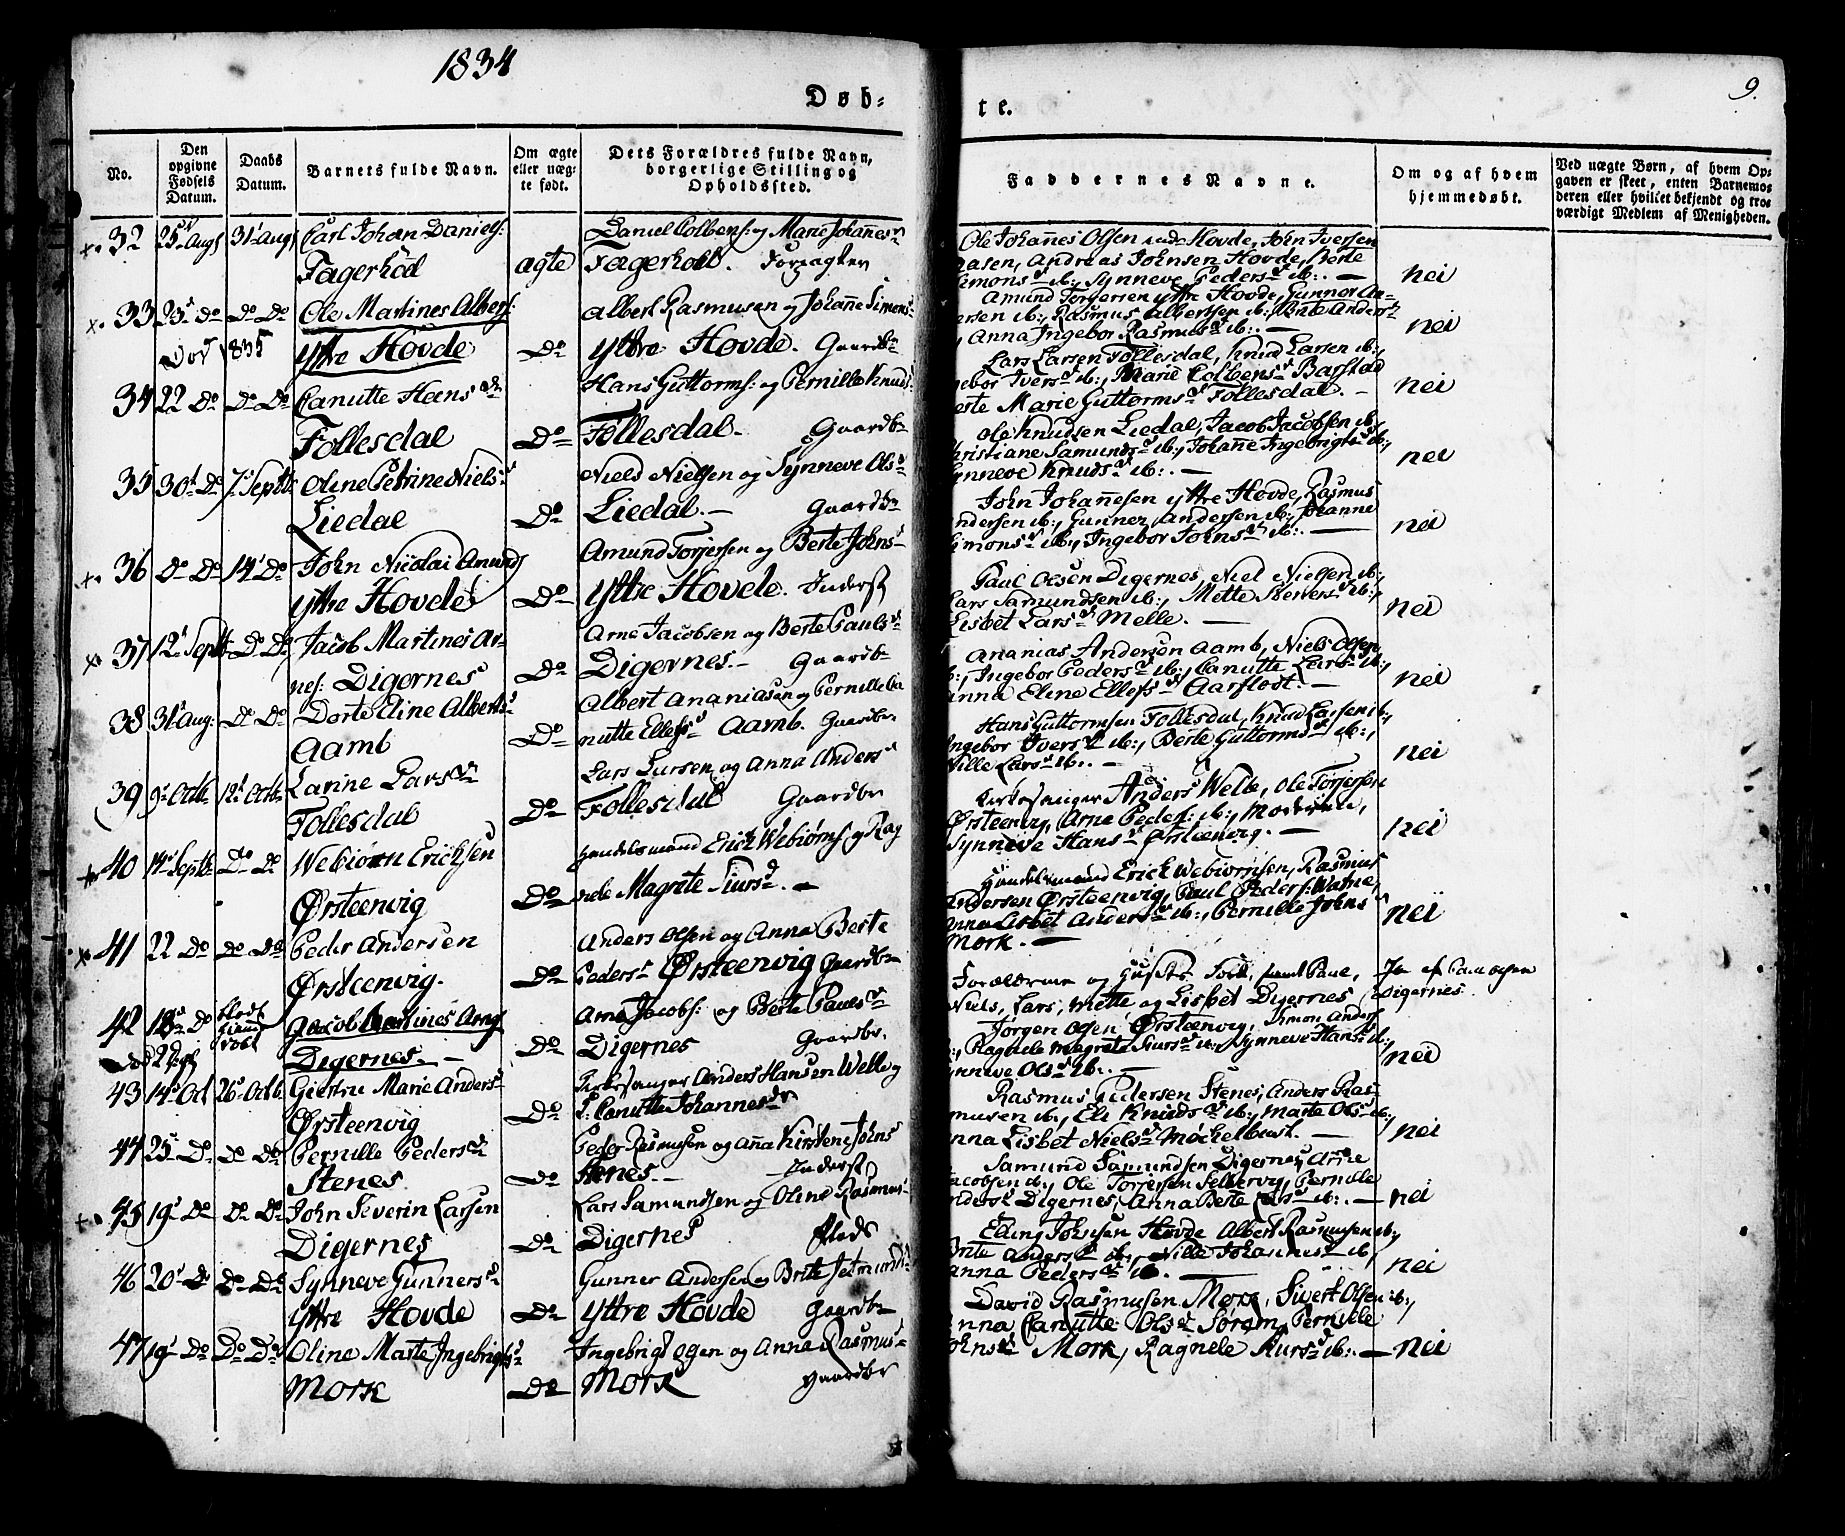 1834
Døb-
te.
9.
No.
Den opgivne Fødsels Datum.
Daabs Datum.
Barnets fulde Navn.
Om ægte eller uægte født.
Dets Forældres fulde Navn, borgerlige Stilling og Opholdssted.
Faddernes Navne.
Om og af hvem hjemmedøbt.
Ved uægte Børn, af hvem Opgaven er skeet, enten Barnemoderen eller hvilket bekjendt og troværdigt Medlem af Menigheden.
32 25 Aug 31 Aug Carl Johan Daniels: Daniel Colbens: og Marie Johannes
Fagerhod ægte Fagerhod. Forpagter
Ole Johannes Olsen Hovde, John Iversen
aasen, Andreas Johnsen Hovde, Berte
imons ib:, Synneve Peders ib:. — nei
33 25 Do Do Do Ole Martines Albers: Albert Rasmusen og Johanne Simons
1835 Yttre Hovde Do Yttre Hovde. Gaardbr
Amund Torgersen yttre Hovde, Gunner An-
ersen ib:, Rasmus Albertsen ib:, Brite Anders
, Anna Ingebor Rasmus ib:. — nei
34 22 Do Do Do Canutte Hans Hans Guttorms: og Pernille Knuds:
Follesdal Do Follesdal. Gaardbr
Lars Larsen Follesdal, Knud Larsen ib:,
gebor Ivers ib:, Marie Colbens Barstad
erte Marie Guttorms Follesdal. — nei
35 30 Do 7 Septb Oline Petrine Niels Niels Nielsen og Synneve Ols
Liedal Do Liedal. — Gaardbr
Ole Knudsen Liedal, Jacob Jacobsen ib:,
hristiane Samunds ib:, Johanne Ingebrigts ib:,
ynneve Knuds ib:. — nei
36 Do Do 14 Do John Nicolai Amunds Amund Torjersen og Berte Johns
Yttre Hovde Do Yttre Hovde. Inderst
John Johannesen yttre Hovde, Rasmus
ndersen ib:, Gunner Andersen ib:, Johanne
imons ib:, Ingebor Johns ib:. — nei
37 12 Septb Do Do Jacob Martines Ar- Arne Jacobsen og Berte Pauls
nes: Digernes Do Digernes. — Gaardbr
Paul Olsen Digernes, Niel Nielsen ib:,
Lars Samundsen ib:, Mette Siverts ib:,
Lisbet Lars Melle. — nei
38 31 Aug: Do Do Dorte Eline Alberts Albert Ananiasen og Pernille Ca
Aamb Do nutte Ellefs Aamb. Gaardbr
Ananias Andersen Aamb, Niels Olsen
b:, Ingebor Peders ib:, Canutte Lars ib:,
anna Eline Ellefs Aarflot. — nei
39 9 Octb 12 Octb Larine Lars Lars Larsen og Anna Anders
Follesdal Do Follesdal Gaardbr
Hans Guttormsen Follesdal, Knud Larsen ib:,
Ingebor Ivers ib:, Berte Guttorms ib:,
Nille Lars ib:. — nei
40 14 Septb Do Do Webiørn Ericksen Handelsmand Erick Webiørns: og Rag
Ørsteenvig Do nele Magrete Siurs. —
Kirkesanger Anders Welle, Ole Torjersen
Ørsteenvig, Arne Peders: ib:, Moderinde,
Synneve Hans Ørsteenvig. — nei
41 22 Do Do Do Peder Andersen Anders Olsen og Anna Berte
Ørsteenvig. Do Peders Ørsteenvig Gaardbr
Handelsmand Erick Webiørnsen, Rasmus
Andersen Ørsteenvig, Paul Peders: Watne,
Anna Lisbet Anders ib:, Pernille Johns
Mork. — nei
42 12 Do Jacob Martines Arnes Arne Jacobs: og Berte Pauls
Digernes. — Do Digernes Gaardbr.
Forældrene og samt Paul,
Niels, Lars, Mette og Lisbet Digernes Ja af Paul Olsen
Digernes.
43 14 Oct 26 Octb Giertru Marie Anders Kirkesanger Anders Hansen Welle og
Ørsteenvig Do Canutte Johannes
Jørgen Olsen Ørsteenvig, Simon Anders
:, Ragnele Magrete Siurs ib:, Synneve Hans ib:,
ynneve Ols ib:. — nei
44 25 Do Do Do Pernille Peders Peder Rasmusen og Anna Kirstene Johns
Stenes. Do Stenes. — Inderst
Rasmus Pedersen Stenes, Anders Ras-
musen ib:, Eli Knuds ib:, Marte Ols ib:,
nna Lisbet Niels Møchelbust. — nei
45 19 Do Do Do John Severin Larsen Lars Samundsen og Oline Rasmus
Digernes Do Digernes Plads
Samund Samundsen Digernes, Arne
acobsen ib:, Ole Torjersen Sellervig, Pernille
nders Digernes, Anna Berte Lars ib:. — nei
46 20 Do Do Do Synneve Gunners Gunner Andersen og Brite Jetmunds
Yttre Hovde Do Yttre Hovde Gaardbr
Elling Johnsen Hovde Albert Rasmusen ib:,
Brite Anders ib:, Nille Johannes ib:,
anna Peders ib. — nei
47 19 Do Do Do Oline Marte Ingebrigts Ingebrigt Ogen og Anne Rasmus
Mork Do Mork Gaardbr
David Rasmusen Mork, Sivert Olsen ib:,
Anna Canutte Ols Sørem, Pernille
Johns Mork, Ragnele Siurs ib:. — nei